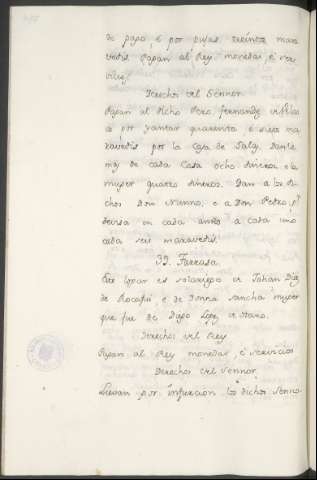 de pago, é por Suias treinta mara
vedis, Pagan al Rey monedas, é ser
vicios
Derechos del Sennor.
Pagan al dicho Pero fernandez de
a por yantar quarenta é siete ma
ravedis por la Casa de Salas. Danle
mas de cada Casa ocho dineros, e la
muger quatro dineros. Dan a los di
chos Don Nunno, e a Don Pedro, pr
devisa en cada anno a cada uno
cada seis maravedis.
32. Tarrasa
Este logar es solariego de Johan Diaz
de Rocafui, e de Donna Sancha muger
que fue de Diago Lopez de Haro.
Derechos del Rey
Pagan al Rey monedas, é servicios
Derechos del Sennor
Lievan por infurcion los dichos Senno